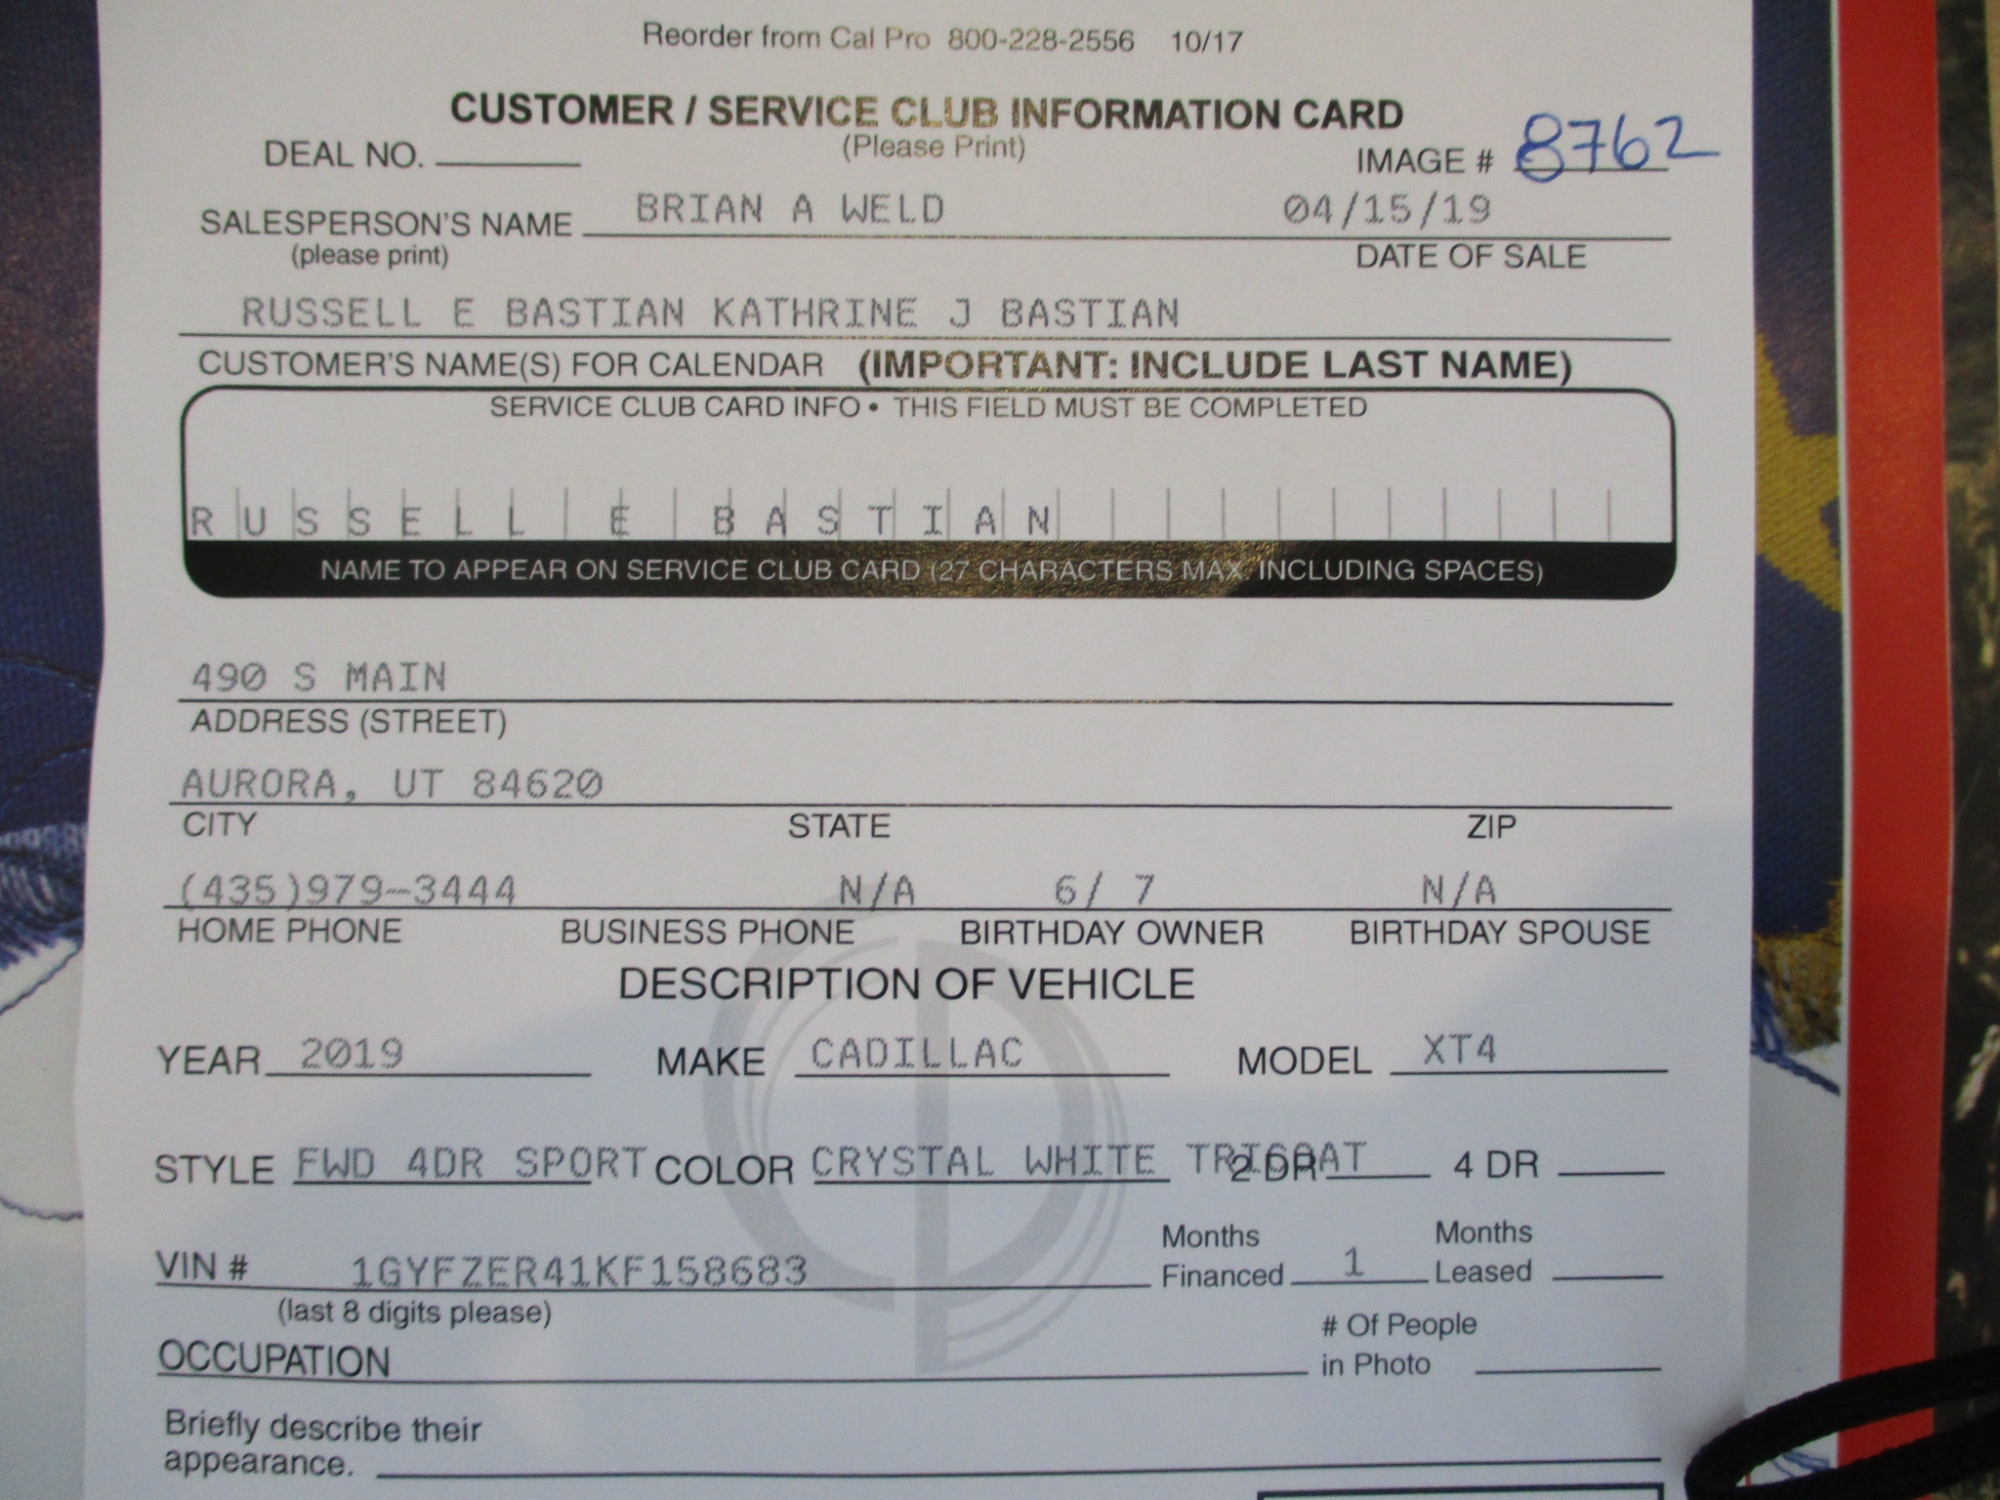 Reorder from Cal Pro 800-228-2556 10/17
CUSTOMER / SERVICE CLUB INFORMATION CARD
(Please Print)
DEAL NO.
IMAGE # 8762
SALESPERSON'S NAME BRIAN A WELD 04/15/19
(please print) DATE OF SALE
RUSSELL E BASTIAN KATHRINE J BASTIAN
CUSTOMER'S NAME(S) FOR CALENDAR (IMPORTANT: INCLUDE LAST NAME)
SERVICE CLUB CARD INFO • THIS FIELD MUST BE COMPLETED
RUSSELL E BASTIAN
NAME TO APPEAR ON SERVICE CLUB CARD (27 CHARACTERS MAX. INCLUDING SPACES)
490 S MAIN
ADDRESS (STREET)
AURORA, UT 84620
CITY STATE ZIP
(435)979-3444 N/A 6/ 7 N/A
HOME PHONE BUSINESS PHONE BIRTHDAY OWNER BIRTHDAY SPOUSE
DESCRIPTION OF VEHICLE
YEAR 2019 MAKE CADILLAC MODEL XT4
STYLE FWD 4DR SPORT COLOR CRYSTAL WHITE TRICOAT 2 DR 4 DR
VIN # 1GYFZER41KF158683 Months Financed 1 Months Leased
(last 8 digits please)
OCCUPATION # Of People in Photo
Briefly describe their
appearance.